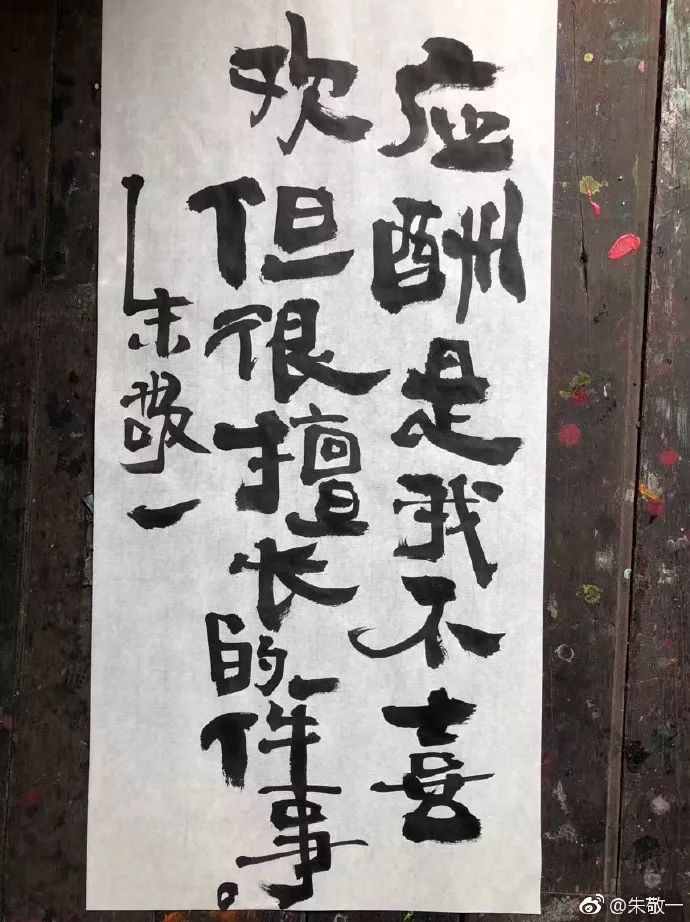 应酬是我不喜
欢但很擅长的一件事。
朱敬一
@朱敬一